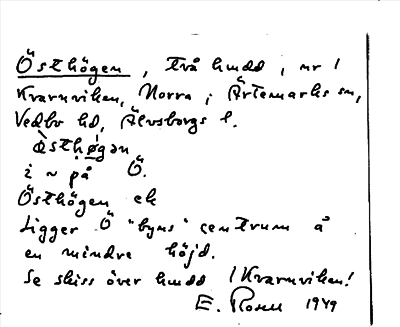 Östhögen, två hmdd, i nr 1
Kvarnviken, Norra i Ärtemarks sn,
Vedbo hd, Älvsborgs l.
òsthøgən
i ~ på Ö.
Östhögen ek
Ligger Ö "byns" centrum å
en mindre höjd.
Se skiss över hmdd / Kvarnviken!
E. Rosell 1949